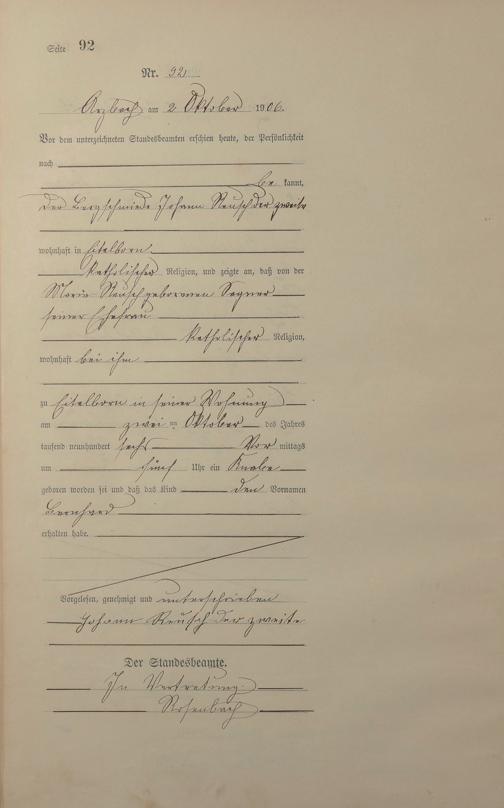 Seite 92
Nr. 92
Arzbach am 2 Oktober 1906.
Vor dem unterzeichneten Standesbeamten erschien heute, der Persönlichkeit
nach
be kannt,
der Bergschmiede Johann Reusch der zweite
wohnhaft in Eitelborn
katholischer Religion, und zeigte an, daß von der
Maria Reusch geborenen Segner
seiner Ehefrau
katholischer Religion,
wohnhaft bei ihm
zu Eitelborn in seiner Wohnung
am zwei ten Oktober des Jahres
tausend neunhundert sechs Vor mittags
um fünf Uhr ein Knabe
geboren worden sei und daß das Kind den Vornamen
Bernhard
erhalten habe.
Vorgelesen, genehmigt und unterschrieben
Johann Reusch der zweite
Der Standesbeamte.
In Vertretung
Rosenbach